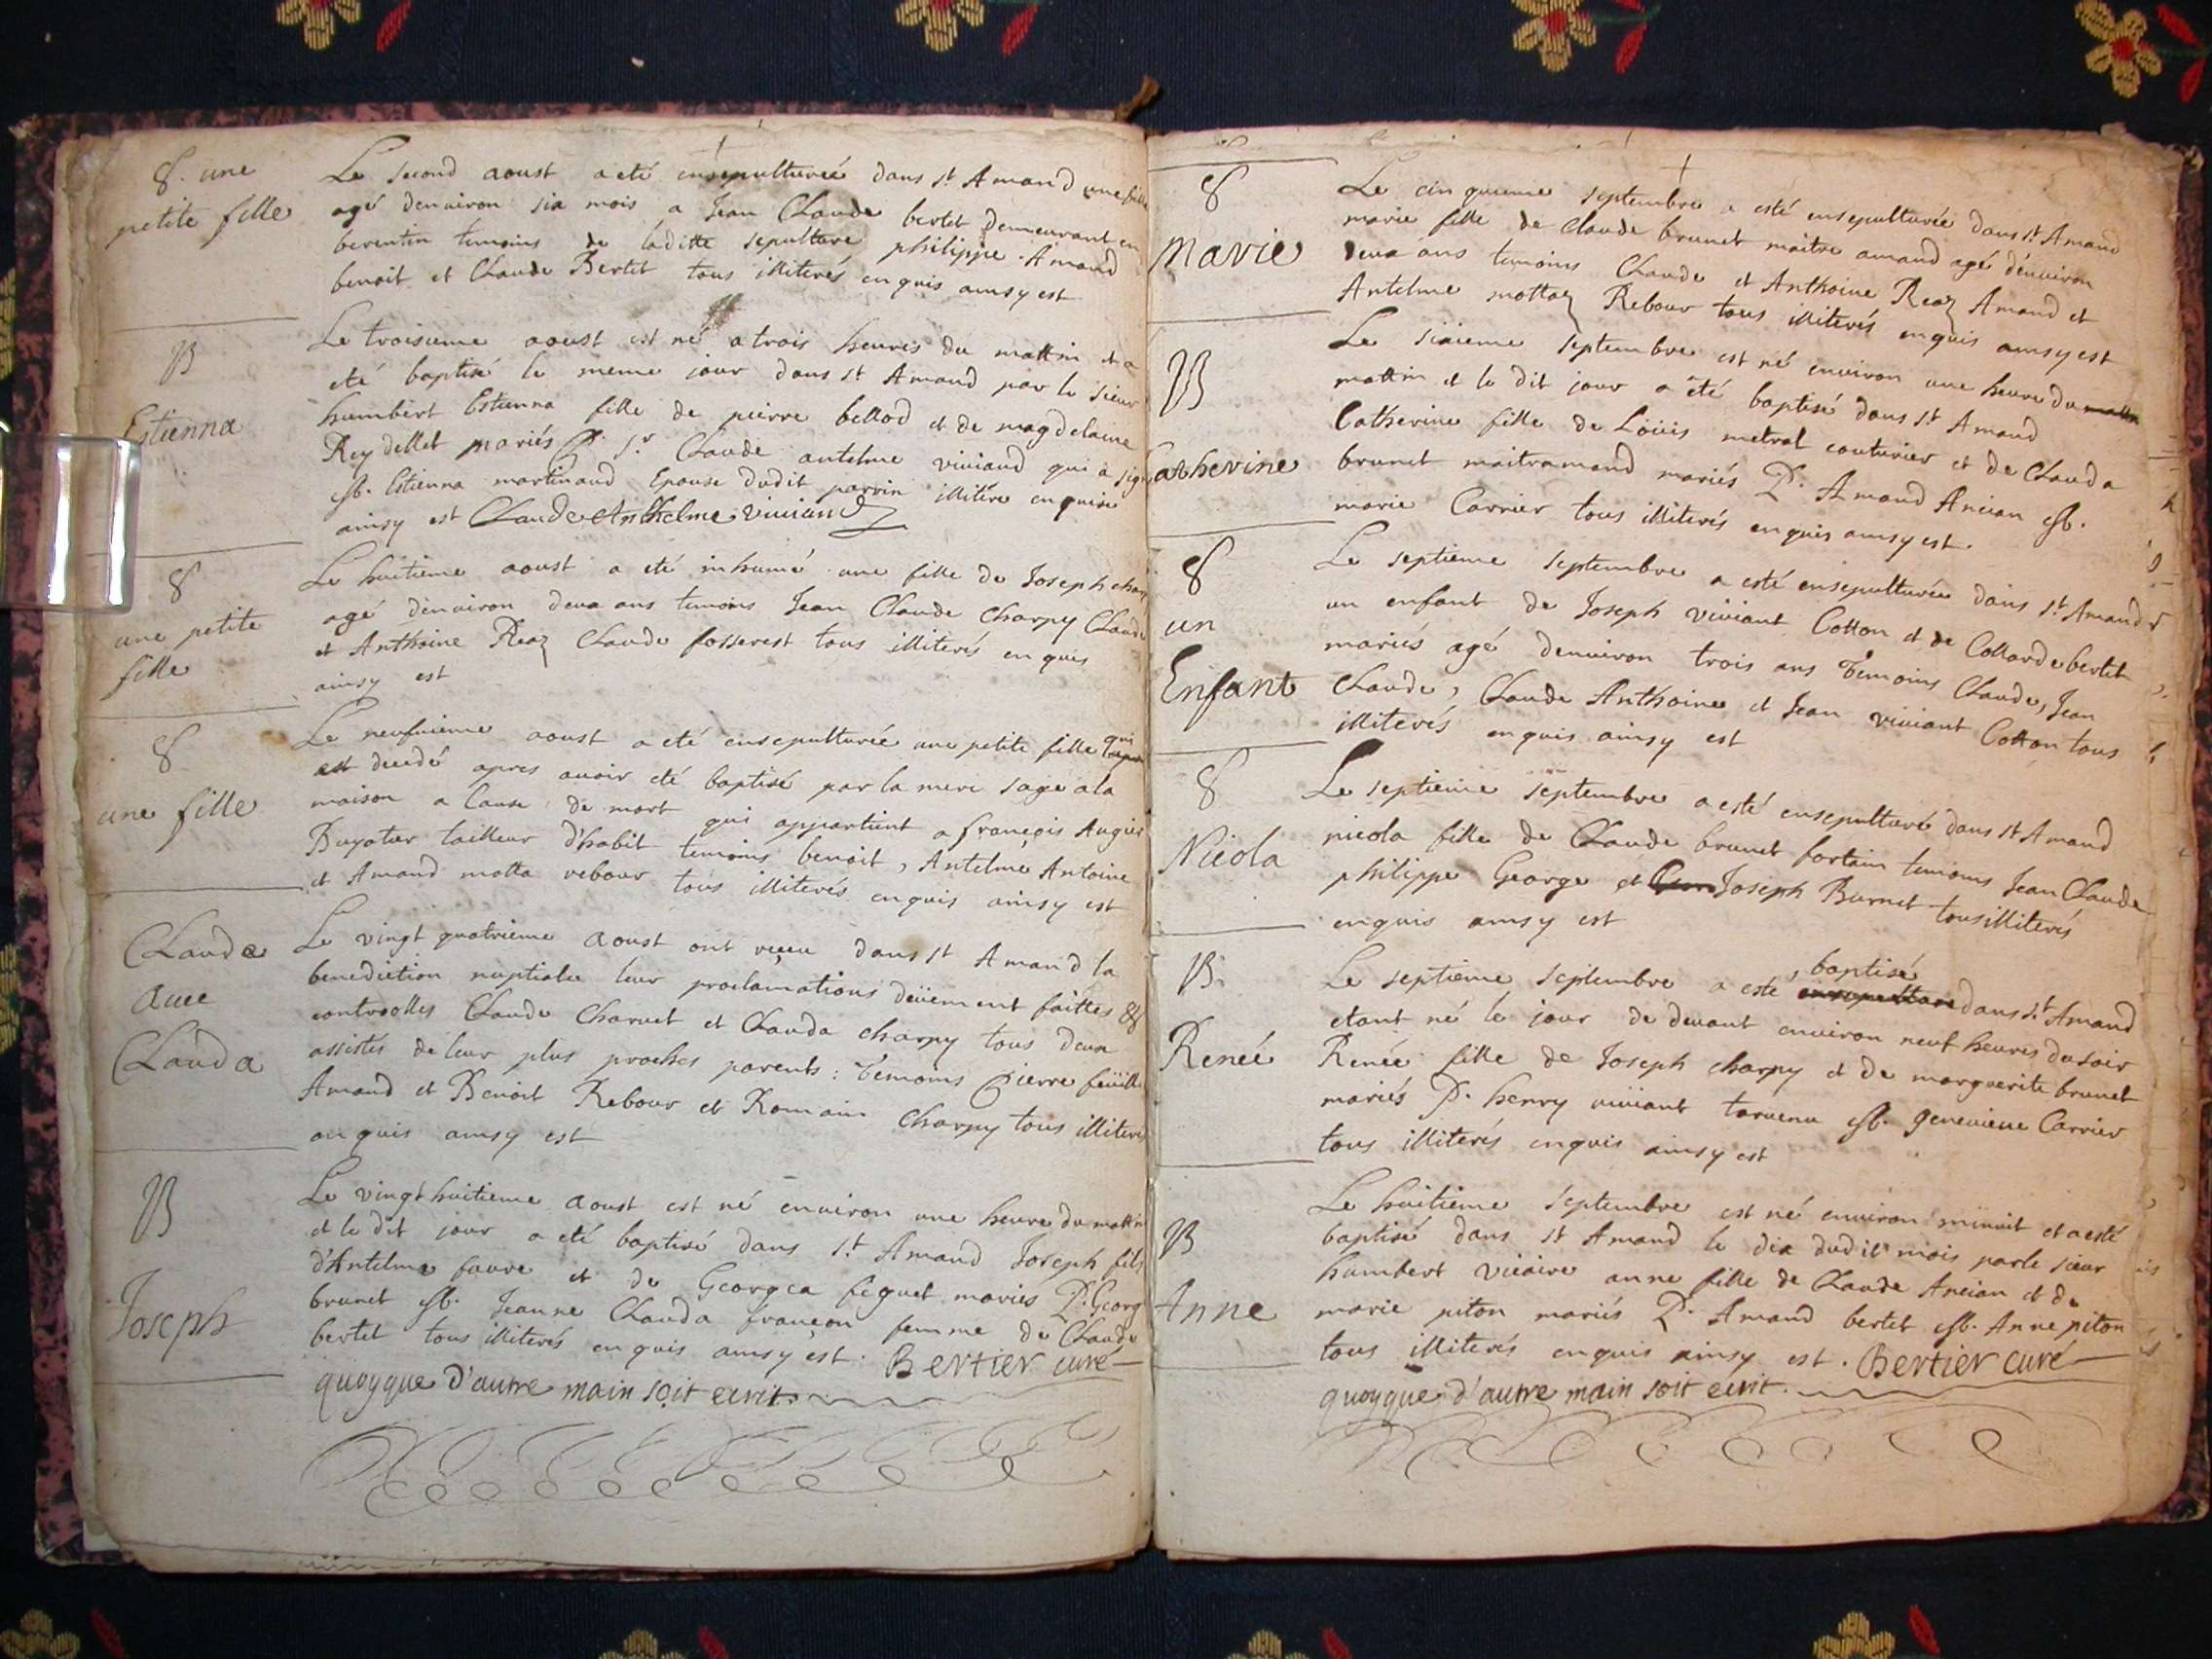 8. une
petite fille
Le second aoust a eté ensepulturée dans st Amand une fille
agé denuiron six mois a Jean Claude bertet demeurant en
berentin temoins de laditte sepulture philippe Amand
benoit et Claude Bertet tous illiterés enquis ainsy est
B
Estienna
Le troisieme aoust est né a trois heures du mattin et a
eté baptisé le meme jour dans st Amand par le sieur
humbert Estienna fille de pierre bellod et de magdelaine
Reydellet mariés P. sr Claude antelme viviand qui a signé
M. Estienna martinaud Epouse dudit parrin illitére enquise
ainsy est Claude Anthelme viviand
8
une petite
fille
Le huitieme aoust a eté inhumé une fille de Joseph charpy
agé denuiron deux ans temoins Jean Claude Charpy Claude
et Anthoine Reaz Claude fosserest tous illiterés enquis
ainsy est
8
une fille
Le neufuieme aoust a eté ensepulturée une petite fille qui
est decedé apres auoir eté baptisé par la mere sage a la
maison a Cause de mort qui appartient a françois Augier
Buyatier tailleur d'habit temoins benoit, Antelme Antoine
et Amand motta rebour tous illiterés enquis ainsy est
Claude
auec
Clauda
Le vingt quatrieme aoust ont reçeu dans st Amand la
benediction nuptiale leur proclamations deüement faittes &
controolles Claude Charuet et Clauda charpy tous deux
assistés de leur plus proches parents : temoins Pierre feüille
Amand et Benoit Rebour et Romain Charpy tous illiterés
enquis ainsy est
B
Joseph
Le vingt huitieme aoust est né enuiron une heure du mattin
et le dit jour a eté baptisé dans st Amand Joseph fils
d'Antelme faure et de Georgea feguet mariés P. George
brunet M. Jeanne Clauda françon femme de Claude
bertet tous illiterés enquis ainsy est. Bertier curé
quoyque d'autre main soit ecrit.
8
Marie
Le cinquieme septembre a esté ensepulturée dans st Amand
marie fille de Claude brunet maitre amand agé d'enuiron
deux ans temoins Claude et Anthoine Reaz Amand et
Antelme mottaz Rebour tous illiterés enquis ainsy est
B
Catherine
Le sixieme septembre est né enuiron une heure du mattin
mattin et le dit jour a eté baptisé dans st Amand
Catherine fille de Loüis metral couturier et de Clauda
brunet maitramand mariés P. Amand Ancian M.
marie Carrier tous illiterés enquis ainsy est.
8
un
Enfant
Le septieme septembre a esté ensepulturée dans st Amand
un enfant de Joseph viviant Cotton et de Collarde bertet
mariés agé denuiron trois ans temoins Claude, Jean
Claude, Claude Anthoine et Jean viviant Cotton tous
illiterés enquis ainsy est
8
Nicola
Le septieme septembre a esté ensepulturé dans st Amand
nicola fille de Claude brunet fortain temoins Jean Claude
philippe George et Joseph Burnet tous illiterés
enquis ainsy est
B.
Renée
Le septieme septembre a esté baptisé dans st Amand
etant né le jour de deuant enuiron neuf heures du soir
Renée fille de Joseph charpy et de marguerite brunet
mariés P. henry viviant taruenu M. geneuieue Carrier
tous illiterés enquis ainsy est
B
Anne
Le huitieme septembre est né enuiron minuit et a esté
baptisé dans st Amand le dix dudit mois par le sieur
humbert vicaire anne fille de Claude Ancian et de
marie piton mariés P. Amand bertet M. Anne piton
tous illiterés enquis ainsy est. Bertier curé
quoyque d'autre main soit ecrit.